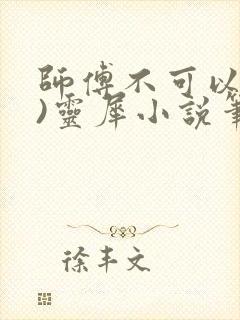 師傅不可以
)靈犀小說筆
徐丰文